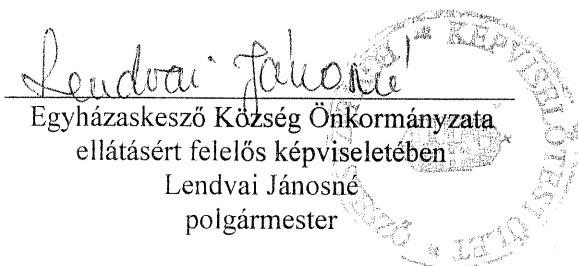 Lendvai Jánosné
Egyházaskesző Község Önkormányzata
ellátásért felelős képviseletében
Lendvai Jánosné
polgármester
KÉPVISELŐTESTÜLET